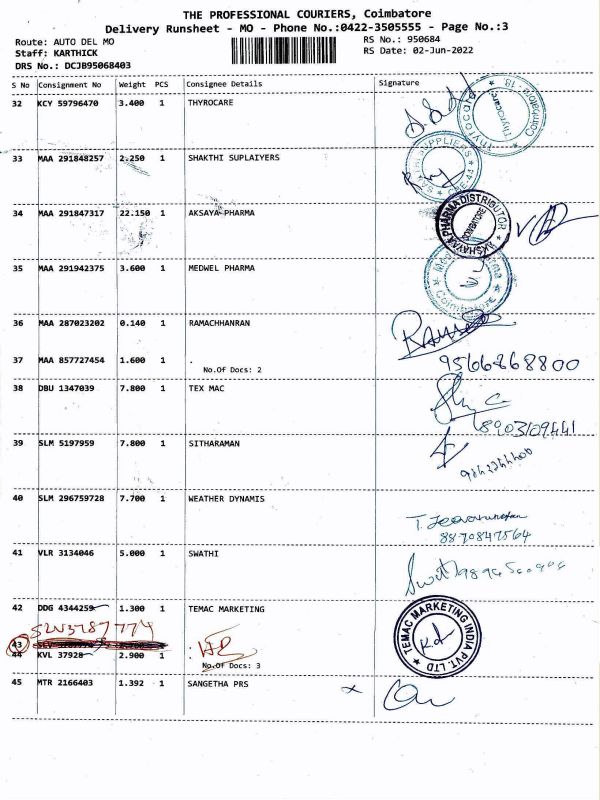 THE PROFESSIONAL COURIERS, Coimbatore
Delivery Runsheet - MO - Phone No.:0422-3505555 - Page No.:3
Route: AUTO DEL MO
RS No.: 950684
Staff: KARTHICK
RS Date: 02-Jun-2022
DRS No.: DCJB95068403
S No Consignment No Weight PCS Consignee Details Signature
32 KCY 59796470 3.400 1 THYROCARE
Thyrocare
33 MAA 291848257 2.250 1 SHAKTHI SUPLAIYERS
34 MAA 291847317 22.150 1 AKSAYA PHARMA
AKSHAYAA PHARMA DISTRIBUTOR
COIMBATORE
35 MAA 291942375 3.600 1 MEDWEL PHARMA
Coimbatore
36 MAA 287023202 0.140 1 RAMACHHANRAN
37 MAA 857727454 1.600 1 .
No.Of Docs: 2
9566868800
38 DBU 1347039 7.800 1 TEX MAC
8903109441
39 SLM 5197959 7.800 1 SITHARAMAN
40 SLM 296759728 7.700 1 WEATHER DYNAMIS
8870847564
41 VLR 3134046 5.000 1 SWATHI
42 DDG 4344259 1.300 1 TEMAC MARKETING
TEMAC MARKETING INDIA PVT. LTD
43
44 KVL 37928 2.900 1 :
No.Of Docs: 3
45 MTR 2166403 1.392 1 SANGETHA PRS